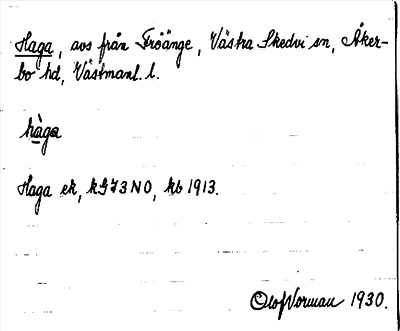 Haga, avs från Fröänge, Västra Skedvi sn, Åker-
bo hd, Västmanl. l.
hàga
Haga ek, kG73NO, kb 1913.
Olof Norman 1930.